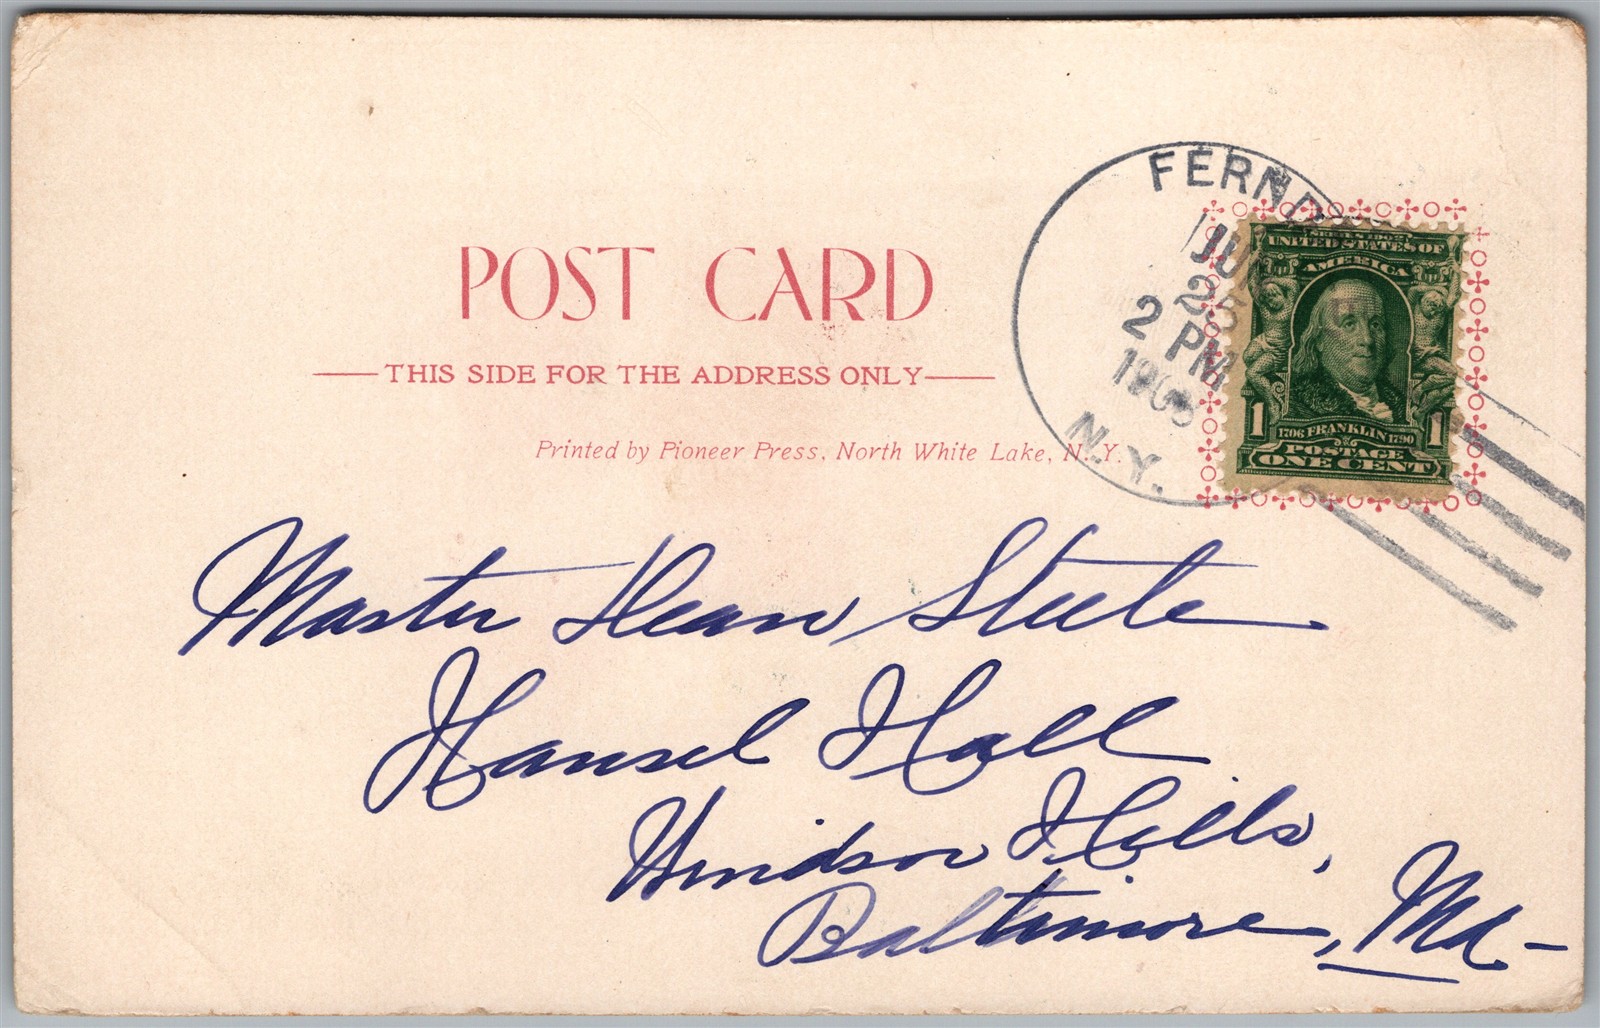 POST CARD
THIS SIDE FOR THE ADDRESS ONLY
Printed by Pioneer Press, North White Lake, N.Y.
2 PM
N.Y.
SERIES 1902
UNITED STATES OF
AMERICA
1 1
1706 FRANKLIN 1790
POSTAGE
ONE CENT
Master Dean Steele
Hansel Hall
Windsor Hills,
Baltimore, Md-